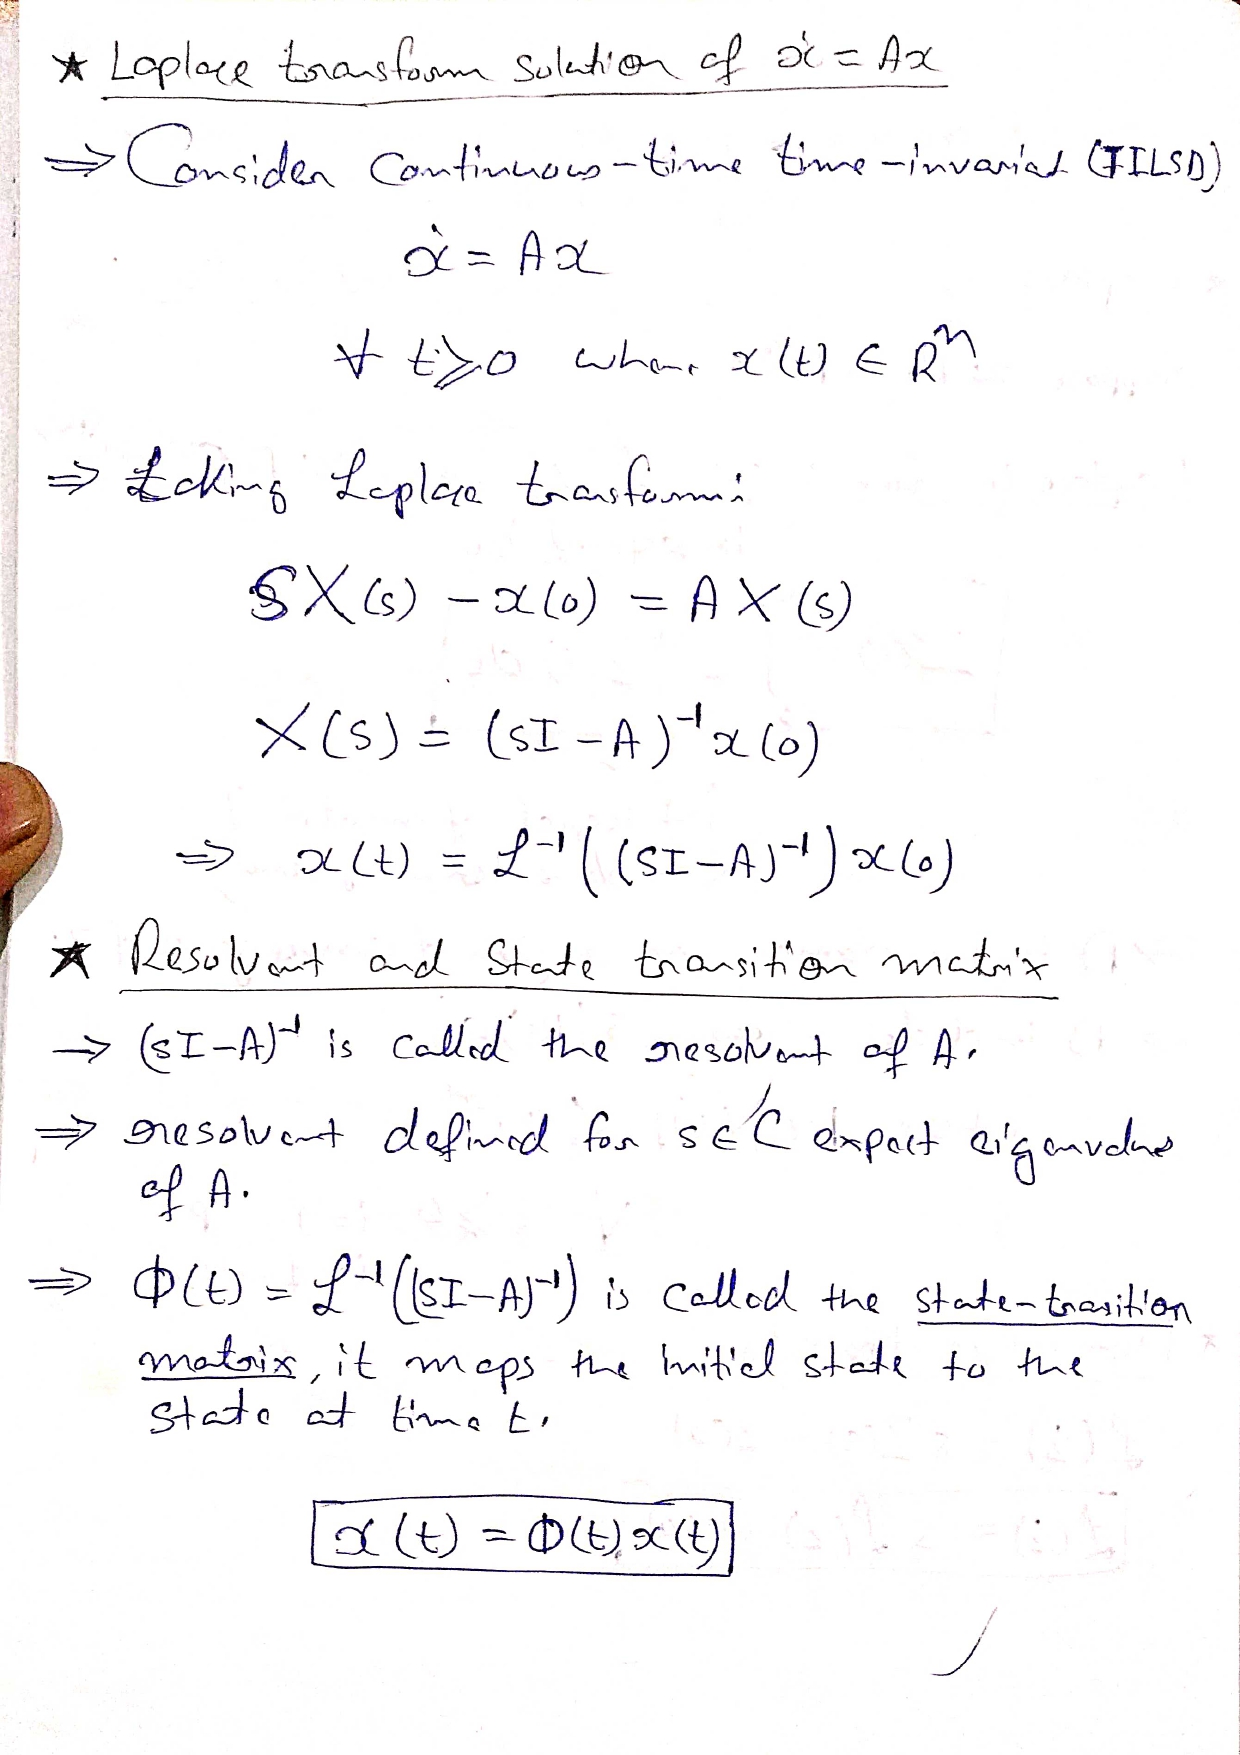 ★ Laplace transform solution of ẋ = Ax
⇒ Consider Continuous-time time-invariat (TILSD)
ẋ = Ax
∀ t ≥ 0 where x(t) ∈ Rⁿ
⇒ taking Laplace transform:
SX(s) - x(0) = AX(s)
X(s) = (sI - A)⁻¹ x(0)
⇒ x(t) = ℒ⁻¹((sI-A)⁻¹) x(0)
★ Resolvant and State transition matrix
→ (sI-A)⁻¹ is called the resolvant of A.
⇒ resolvant defined for s ∈ C expect eigenvalues
of A.
⇒ Φ(t) = ℒ⁻¹((sI-A)⁻¹) is called the state-trasition
matrix, it maps the initial state to the
state at time t.
x(t) = Φ(t) x(t)